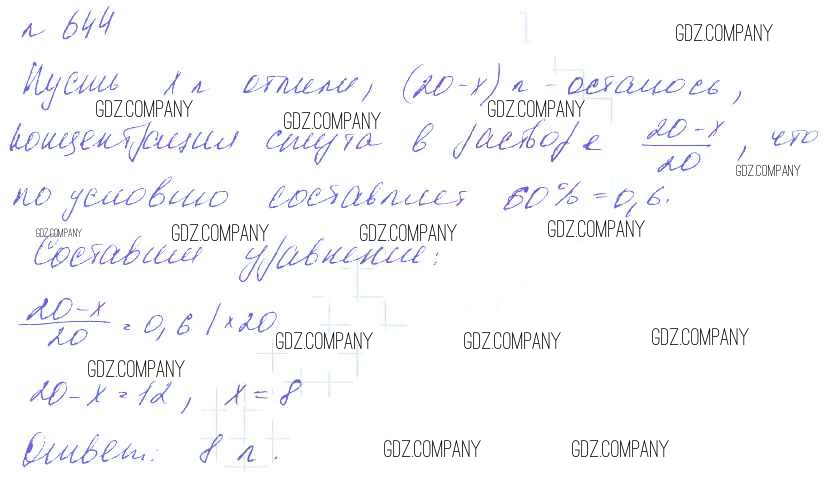 n 644
GDZ.COMPANY
Пусть x л отлили, (20-x) л - осталось,
GDZ.COMPANY GDZ.COMPANY GDZ.COMPANY
концентрация спирта в растворе \frac{20-x}{20}, что
GDZ.COMPANY
по условию составляет 60% = 0,6.
GDZ.COMPANY GDZ.COMPANY GDZ.COMPANY GDZ.COMPANY
Составим уравнение:
\frac{20-x}{20} = 0,6 | ×20
GDZ.COMPANY GDZ.COMPANY GDZ.COMPANY
GDZ.COMPANY
20-x = 12, x = 8
Ответ: 8 л.
GDZ.COMPANY GDZ.COMPANY